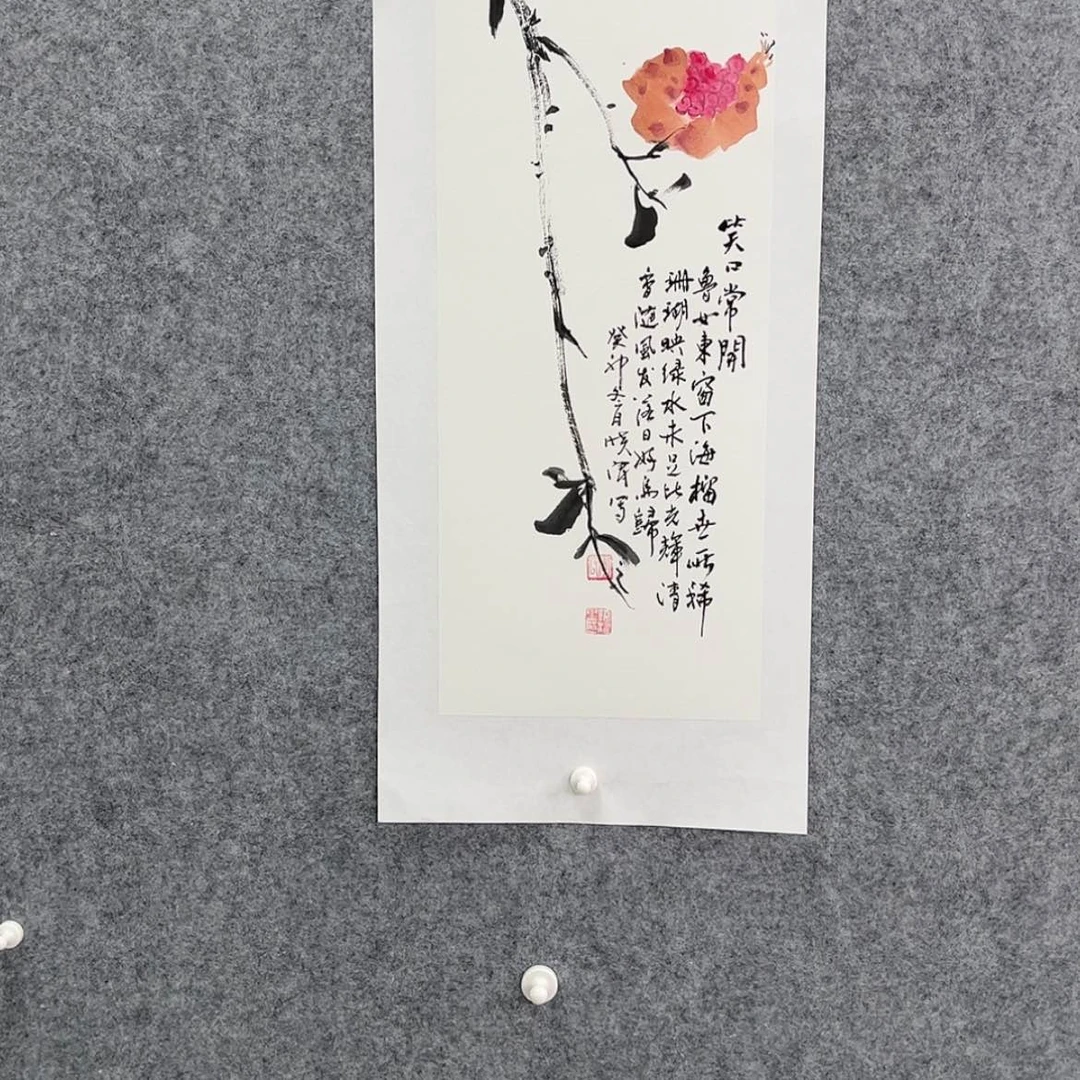 笑口常開
魯女東窗下海榴世所稀
珊瑚映绿水未足比光輝清
香随風发落日好鸟歸
癸卯冬月晓深写